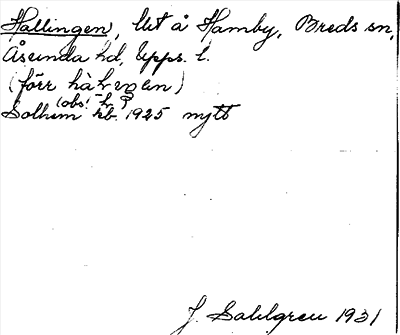 Hallingen, lht å Hamby, Breds sn,
Åsunda hd, Upps. l.
(förr hàhvgen)
(obs! -h-?)
Solhem kb. 1925 nytt
J. Sahlgren 1931